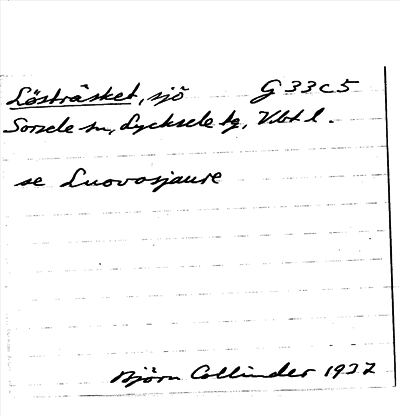 Lösträsket, sjö G 33 c 5
Sorsele sn, Lycksele tg, Vbt l.
se Luovosjaure
Björn Collinder 1937